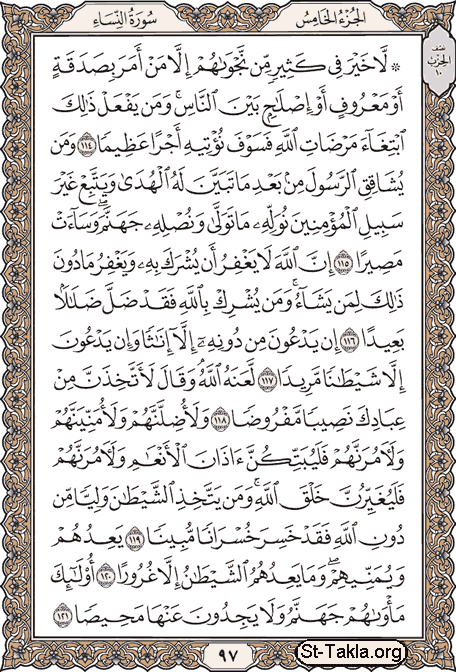 سُورَةُ النِّسَاءِ
الجُزْءُ الخَامِسُ
نصف
الحزب
١٠
۞ لَّا خَيْرَ فِي كَثِيرٍ مِّن نَّجْوَىٰهُمْ إِلَّا مَنْ أَمَرَ بِصَدَقَةٍ
أَوْ مَعْرُوفٍ أَوْ إِصْلَٰحٍۭ بَيْنَ النَّاسِۚ وَمَن يَفْعَلْ ذَٰلِكَ
ابْتِغَآءَ مَرْضَاتِ اللَّهِ فَسَوْفَ نُؤْتِيهِ أَجْرًا عَظِيمًا ١١٤ وَمَن
يُشَاقِقِ الرَّسُولَ مِنۢ بَعْدِ مَا تَبَيَّنَ لَهُ الْهُدَىٰ وَيَتَّبِعْ غَيْرَ
سَبِيلِ الْمُؤْمِنِينَ نُوَلِّهِۦ مَا تَوَلَّىٰ وَنُصْلِهِۦ جَهَنَّمَۖ وَسَآءَتْ
مَصِيرًا ١١٥ إِنَّ اللَّهَ لَا يَغْفِرُ أَن يُشْرَكَ بِهِۦ وَيَغْفِرُ مَا دُونَ
ذَٰلِكَ لِمَن يَشَآءُۚ وَمَن يُشْرِكْ بِاللَّهِ فَقَدْ ضَلَّ ضَلَٰلًۢا
بَعِيدًا ١١٦ إِن يَدْعُونَ مِن دُونِهِۦٓ إِلَّآ إِنَٰثًا وَإِن يَدْعُونَ
إِلَّا شَيْطَٰنًا مَّرِيدًا ١١٧ لَّعَنَهُ اللَّهُۘ وَقَالَ لَأَتَّخِذَنَّ مِنْ
عِبَادِكَ نَصِيبًا مَّفْرُوضًا ١١٨ وَلَأُضِلَّنَّهُمْ وَلَأُمَنِّيَنَّهُمْ
وَلَءَامُرَنَّهُمْ فَلَيُبَتِّكُنَّ ءَاذَانَ الْأَنْعَٰمِ وَلَءَامُرَنَّهُمْ
فَلَيُغَيِّرُنَّ خَلْقَ اللَّهِۚ وَمَن يَتَّخِذِ الشَّيْطَٰنَ وَلِيًّا مِّن
دُونِ اللَّهِ فَقَدْ خَسِرَ خُسْرَانًا مُّبِينًا ١١٩ يَعِدُهُمْ
وَيُمَنِّيهِمْۖ وَمَا يَعِدُهُمُ الشَّيْطَٰنُ إِلَّا غُرُورًا ١٢٠ أُو۟لَٰٓئِكَ
مَأْوَىٰهُمْ جَهَنَّمُ وَلَا يَجِدُونَ عَنْهَا مَحِيصًا ١٢١
٩٧
St-Takla.org